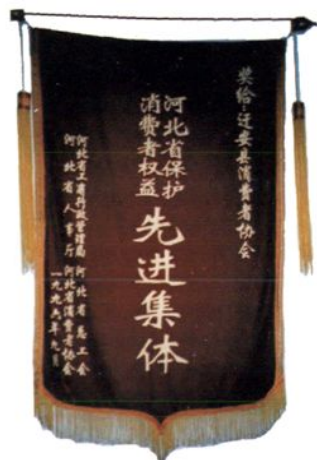 奖给：迁安县消费者协会
河北省保护
消费者权益
先进集体
河北省工商行政管理局 河北省总工会
河北省人事厅 河北省消费者协会
一九九六年九月